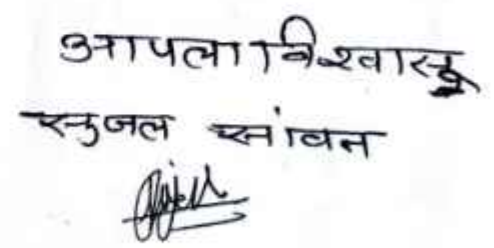 आपला विश्वासू
सुजल सांवत